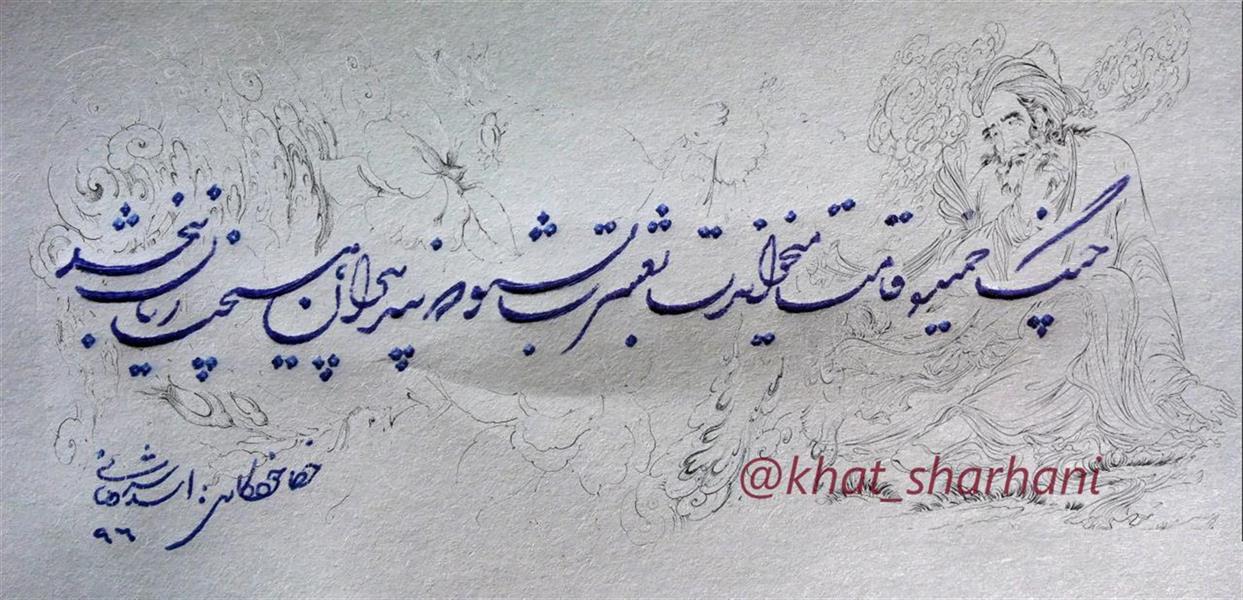 چنگ خمیده قامت میخواندت بعشرت بشنو که پند پیران هیچت زیان ندارد
خط خودکاری : اسد شرهانی
۹۶
@khat_sharhani